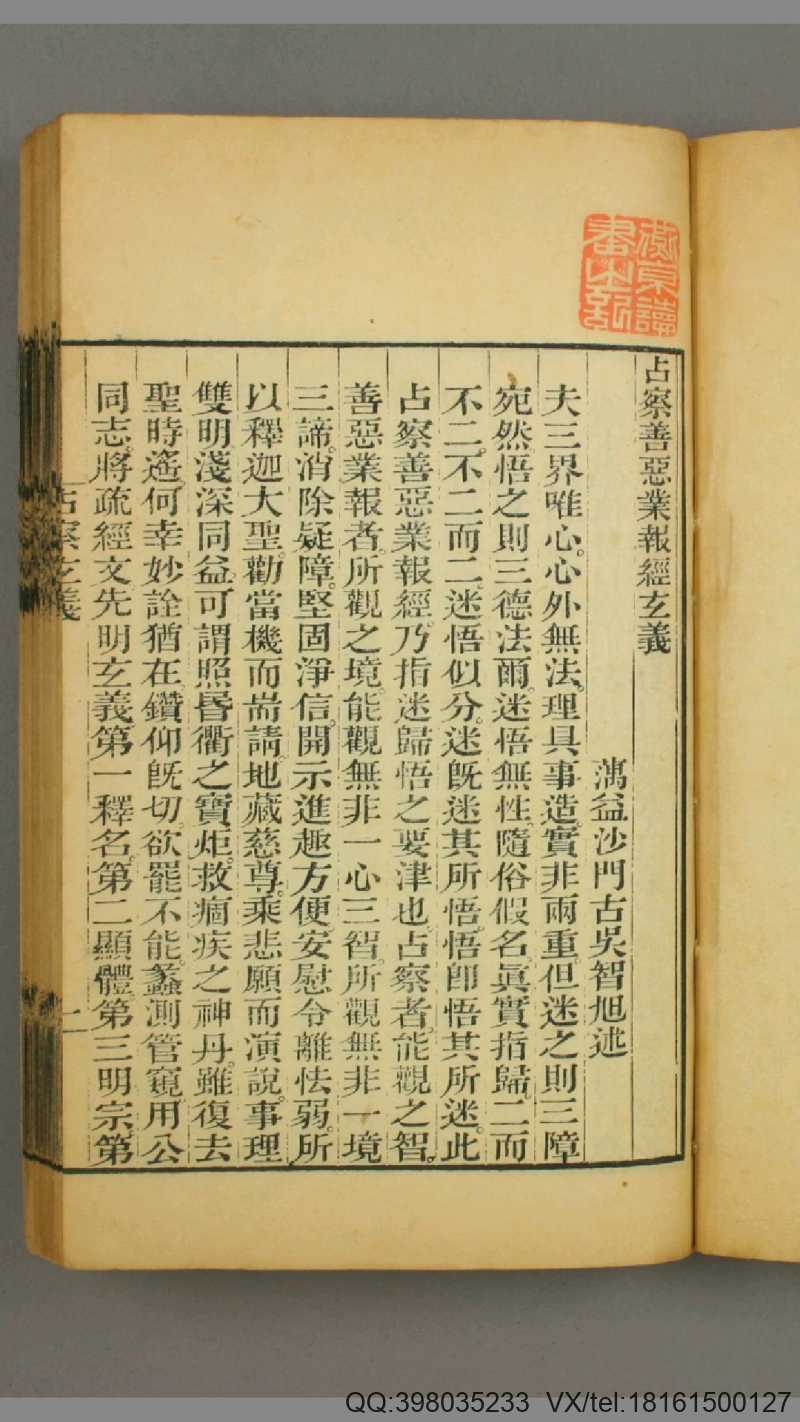 占察善惡業報經玄義
蕅益沙門古吳智旭述
夫三界唯心。心外無法。理具事造。實非兩重。但迷之則三障
宛然悟之則三德法爾。迷悟無性。隨俗假名。眞實指歸。二而
不二。不二而二。迷悟似分。迷旣迷其所悟。悟卽悟其所迷。此
占察善惡業報經。乃指迷歸悟之要津也。占察者。能觀之智。
善惡業報者。所觀之境。能觀無非一心三智。所觀無非一境
三諦。消除疑障。堅固淨信。開示進趣方便。安慰令離怯弱。所
以釋迦大聖。勸當機而耑請。地藏慈尊。乘悲願而演說。事理
雙明。淺深同益。可謂照昏衢之寶炬。救痼疾之神丹。雖復去
聖時遙。何幸妙詮猶在。鑽仰旣切。欲罷不能。蠡測管窺。用公
同志。將疏經文。先明玄義。第一釋名。第二顯體。第三明宗。第
占察玄義
一
QQ:398035233 VX/tel:18161500127